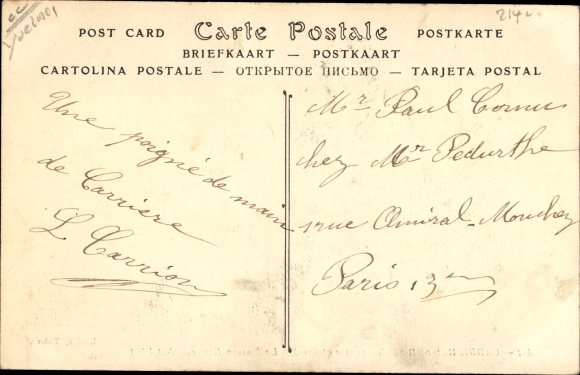 POST CARD Carte Postale POSTKARTE
BRIEFKAART — POSTKAART
CARTOLINA POSTALE — ОТКРЫТОЕ ПИСЬМО — TARJETA POSTAL
Une poigné de main
de Carriere
L Carrion
Mr. Paul Cornu
chez Mr Pedurthe
1 rue Amiral-Mouchez
Paris 13e